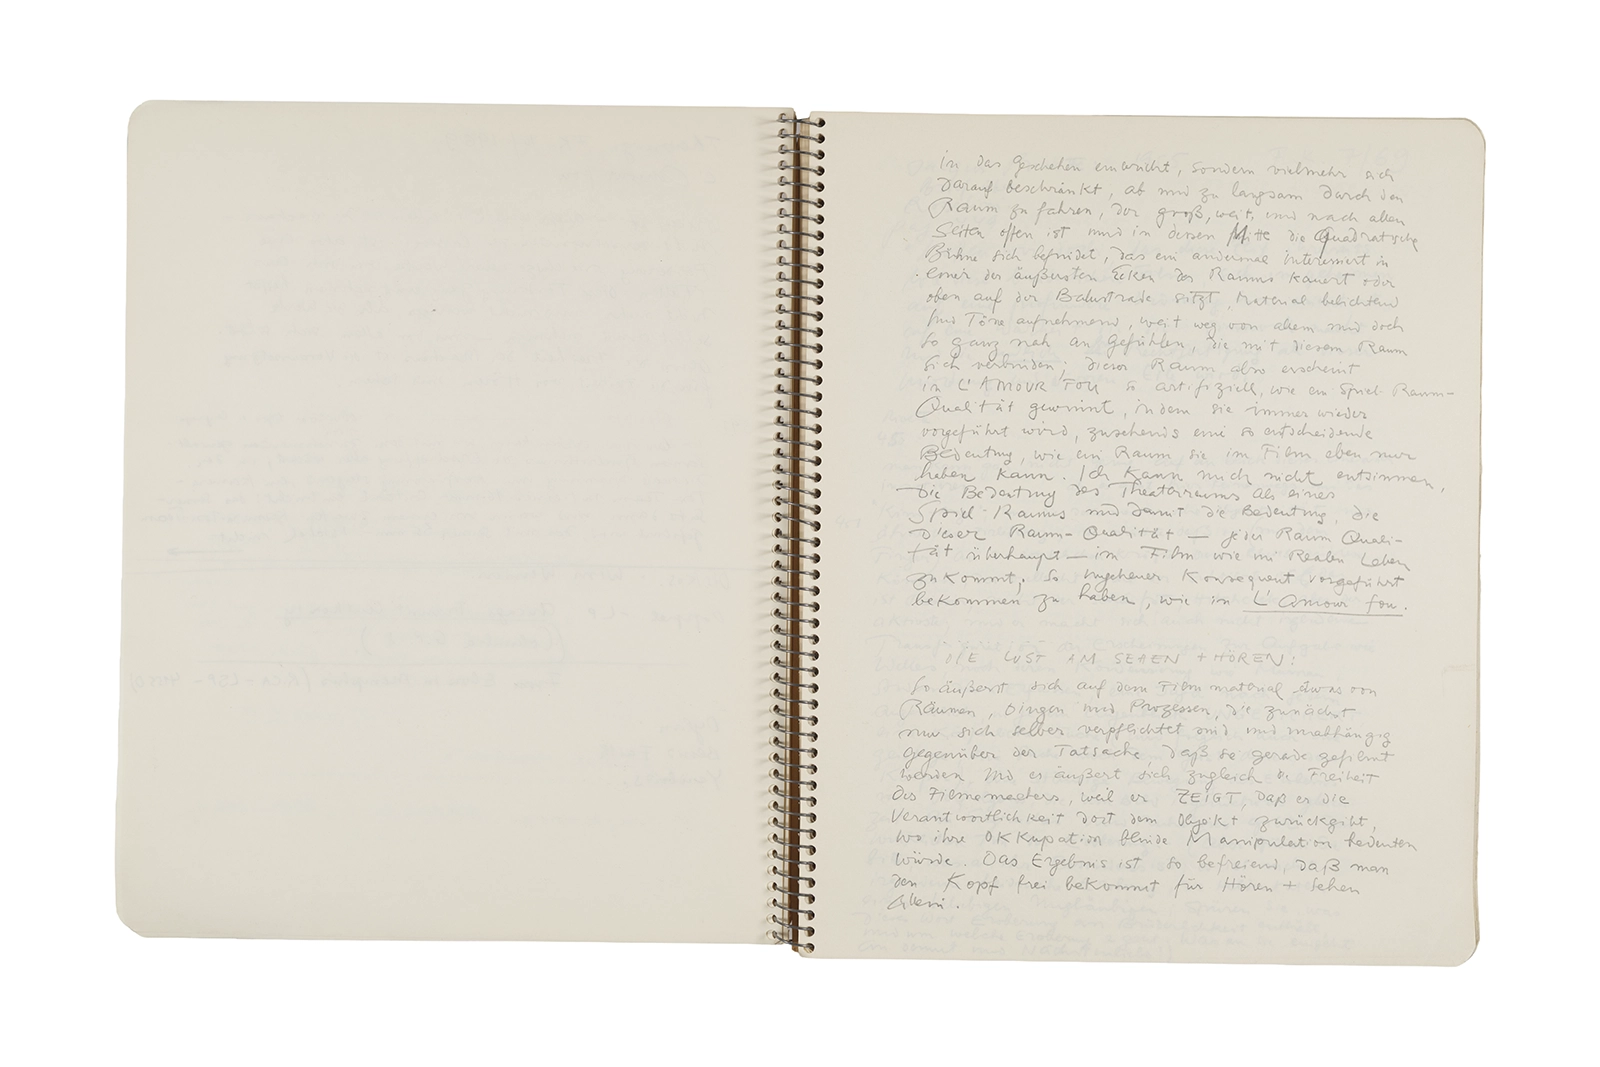 in das Geschehen einmischt, sondern vielmehr sich
darauf beschränkt, ab und zu langsam durch den
Raum zu fahren, der groß, weit, und nach allen
Seiten offen ist und in dessen Mitte die Quadratische
Bühne sich befindet, das ein andermal interessiert in
einer der äußersten Ecken des Raums kauert oder
oben auf der Balustrade sitzt, Material belichtend
und Töne aufnehmend, weit weg von allem und doch
so ganz nah an Gefühlen, die mit diesem Raum
sich verbinden; dieser Raum also erscheint
in L'AMOUR FOU so artifiziell, wie ein Spiel-Raum-
Qualität gewinnt, indem sie immer wieder
vorgeführt wird, zusehends eine so entscheidende
Bedeutung, wie ein Raum sie im Film eben nur
haben kann. Ich kann mich nicht entsinnen,
die Bedeutung des Theaterraums als eines
Spiel-Raums und damit die Bedeutung, die
dieser Raum-Qualität — jeder Raum Quali-
tät überhaupt — im Film wie im Realen Leben
zukommt, so ungeheuer konsequent vorgeführt
bekommen zu haben, wie in L'Amour fou.
DIE LUST AM SEHEN + HÖREN:
So äußert sich auf dem Filmmaterial etwas von
Räumen, Dingen und Prozessen, die zunächst
nur sich selber verpflichtet sind und unabhängig
gegenüber der Tatsache, daß sie gerade gefilmt
werden. Und es äußert sich zugleich die Freiheit
des Filmemachers, weil er ZEIGT, daß er die
Verantwortlichkeit dort dem Objekt zurückgibt,
wo ihre Okkupation blinde Manipulation bedeuten
würde. Das Ergebnis ist so befreiend, daß man
den Kopf frei bekommt für Hören + Sehen
allein.